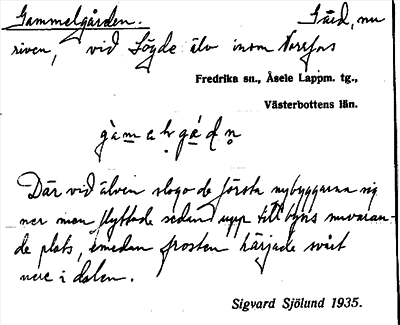 Gammelgården. Gård, nu
riven, vid Lögde älv inom Norrfors
Fredrika sn., Åsele Lappm. tg.,
Västerbottens län.
Där vid älven slogo de första nybyggarna sig
ner men flyttade sedan upp till byns nuvaran-
de plats, emedan frosten härjade svårt
nere i dalen.
Sigvard Sjölund 1935.